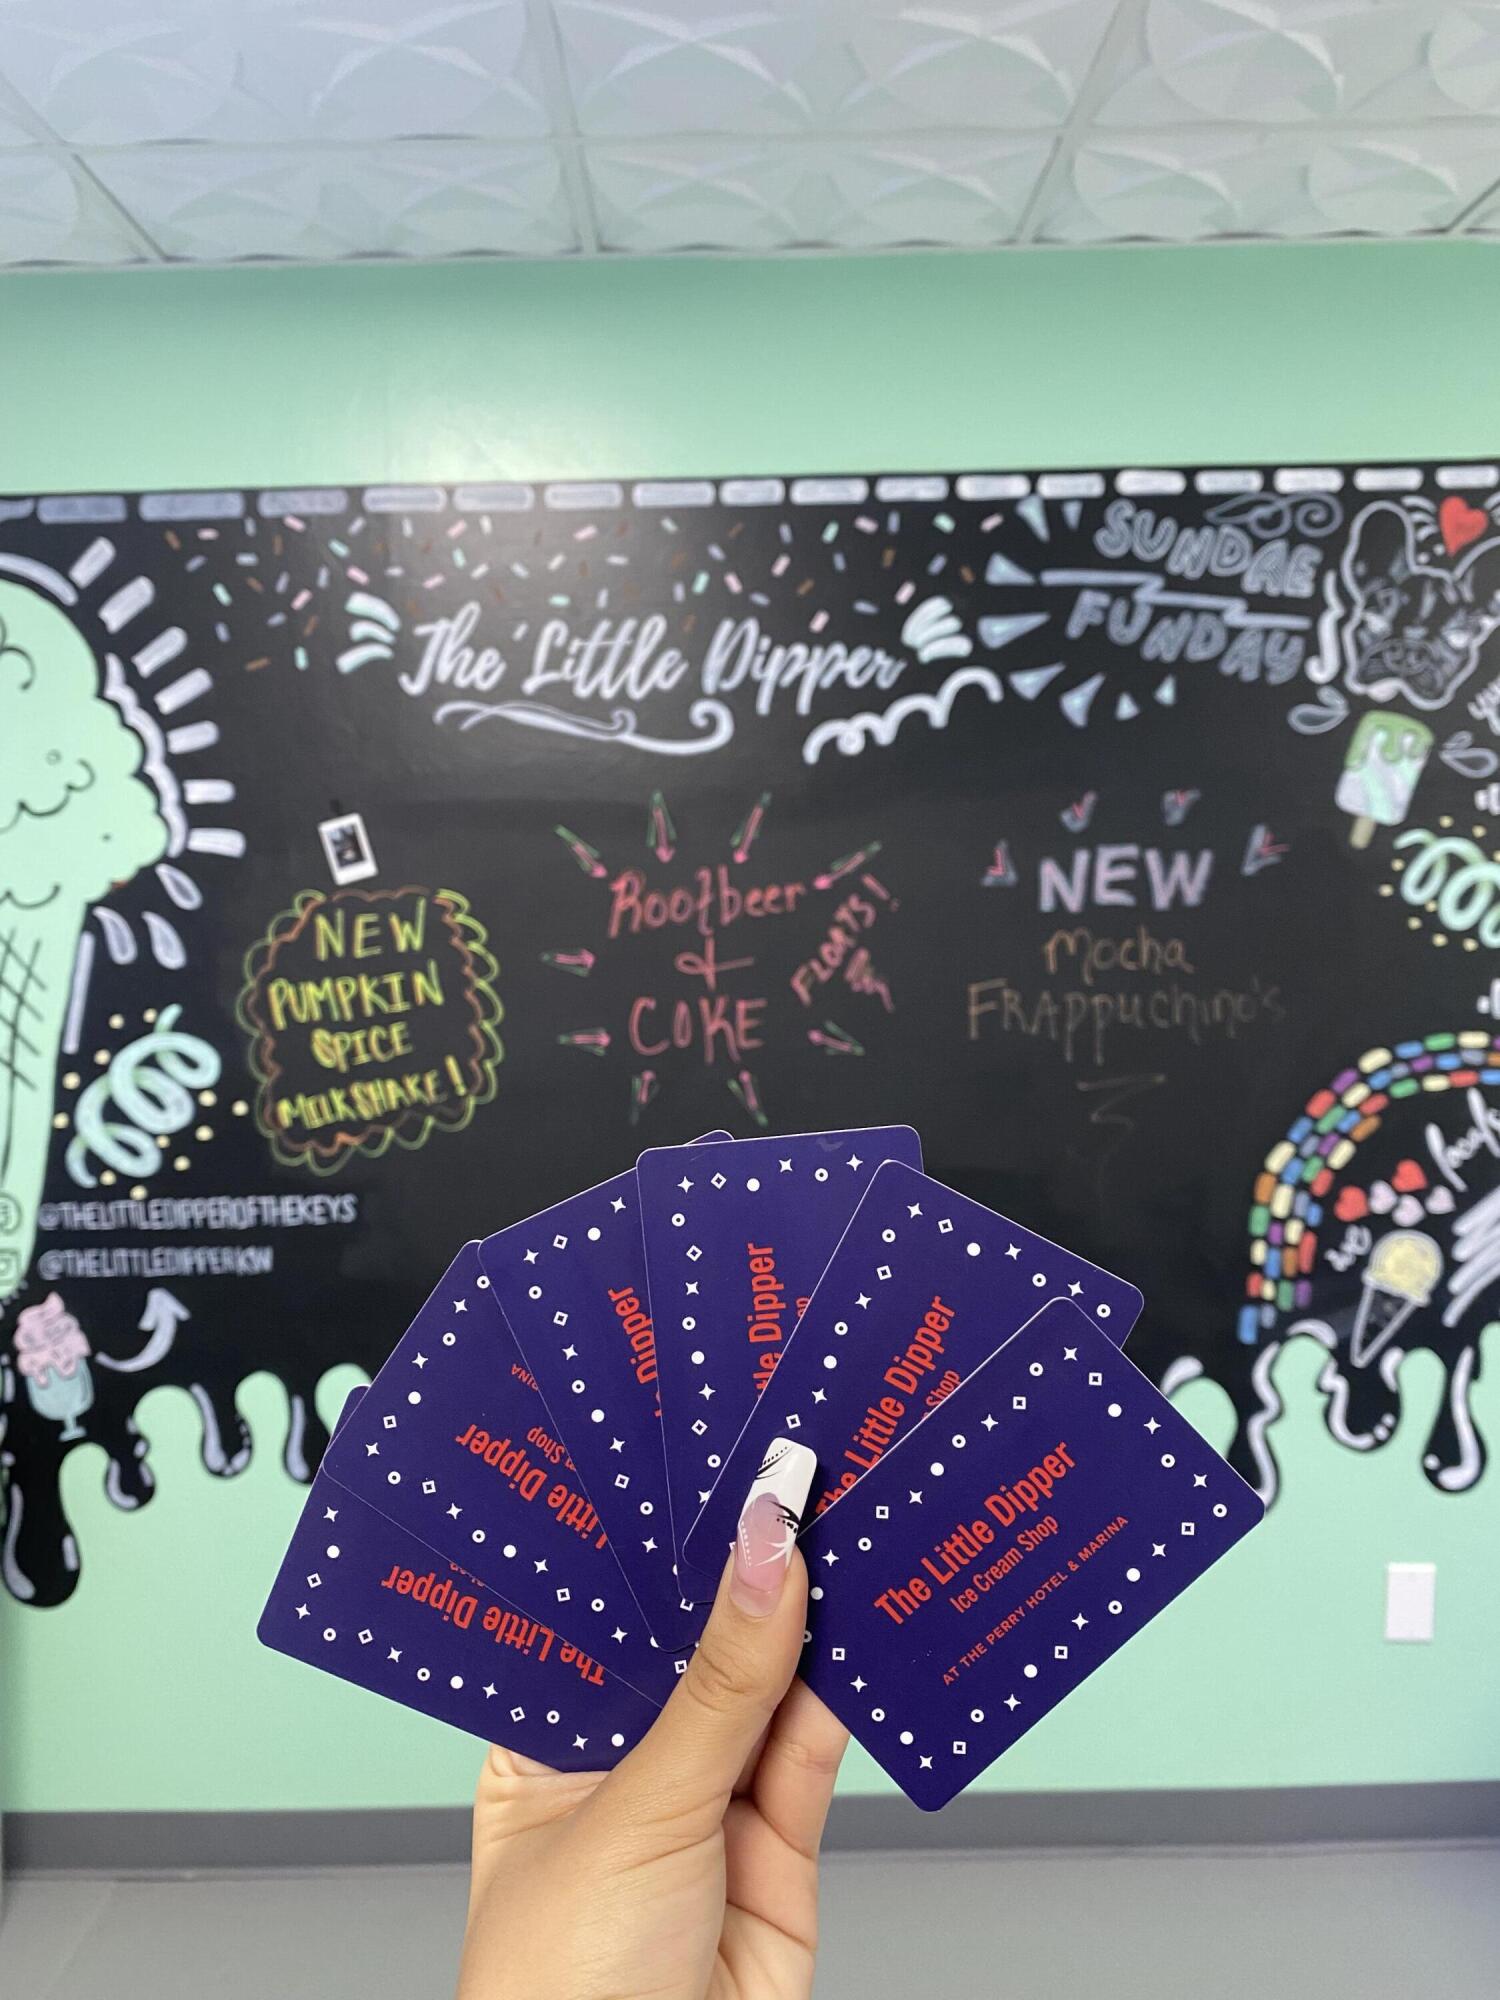 SUNDAE
FUNDAY
The Little Dipper
NEW
PUMPKIN
SPICE
MILKSHAKE!
Rootbeer
+
COKE
FLOATS!
NEW
Mocha
FRAppuchino's
@THELITTLEDIPPEROFTHEKEYS
@THELITTLEDIPPERKW
we
The Little Dipper
Little Dipper
Shop
Dipper
Dipper
The Little Dipper
Shop
The Little Dipper
Ice Cream Shop
AT THE PERRY HOTEL & MARINA